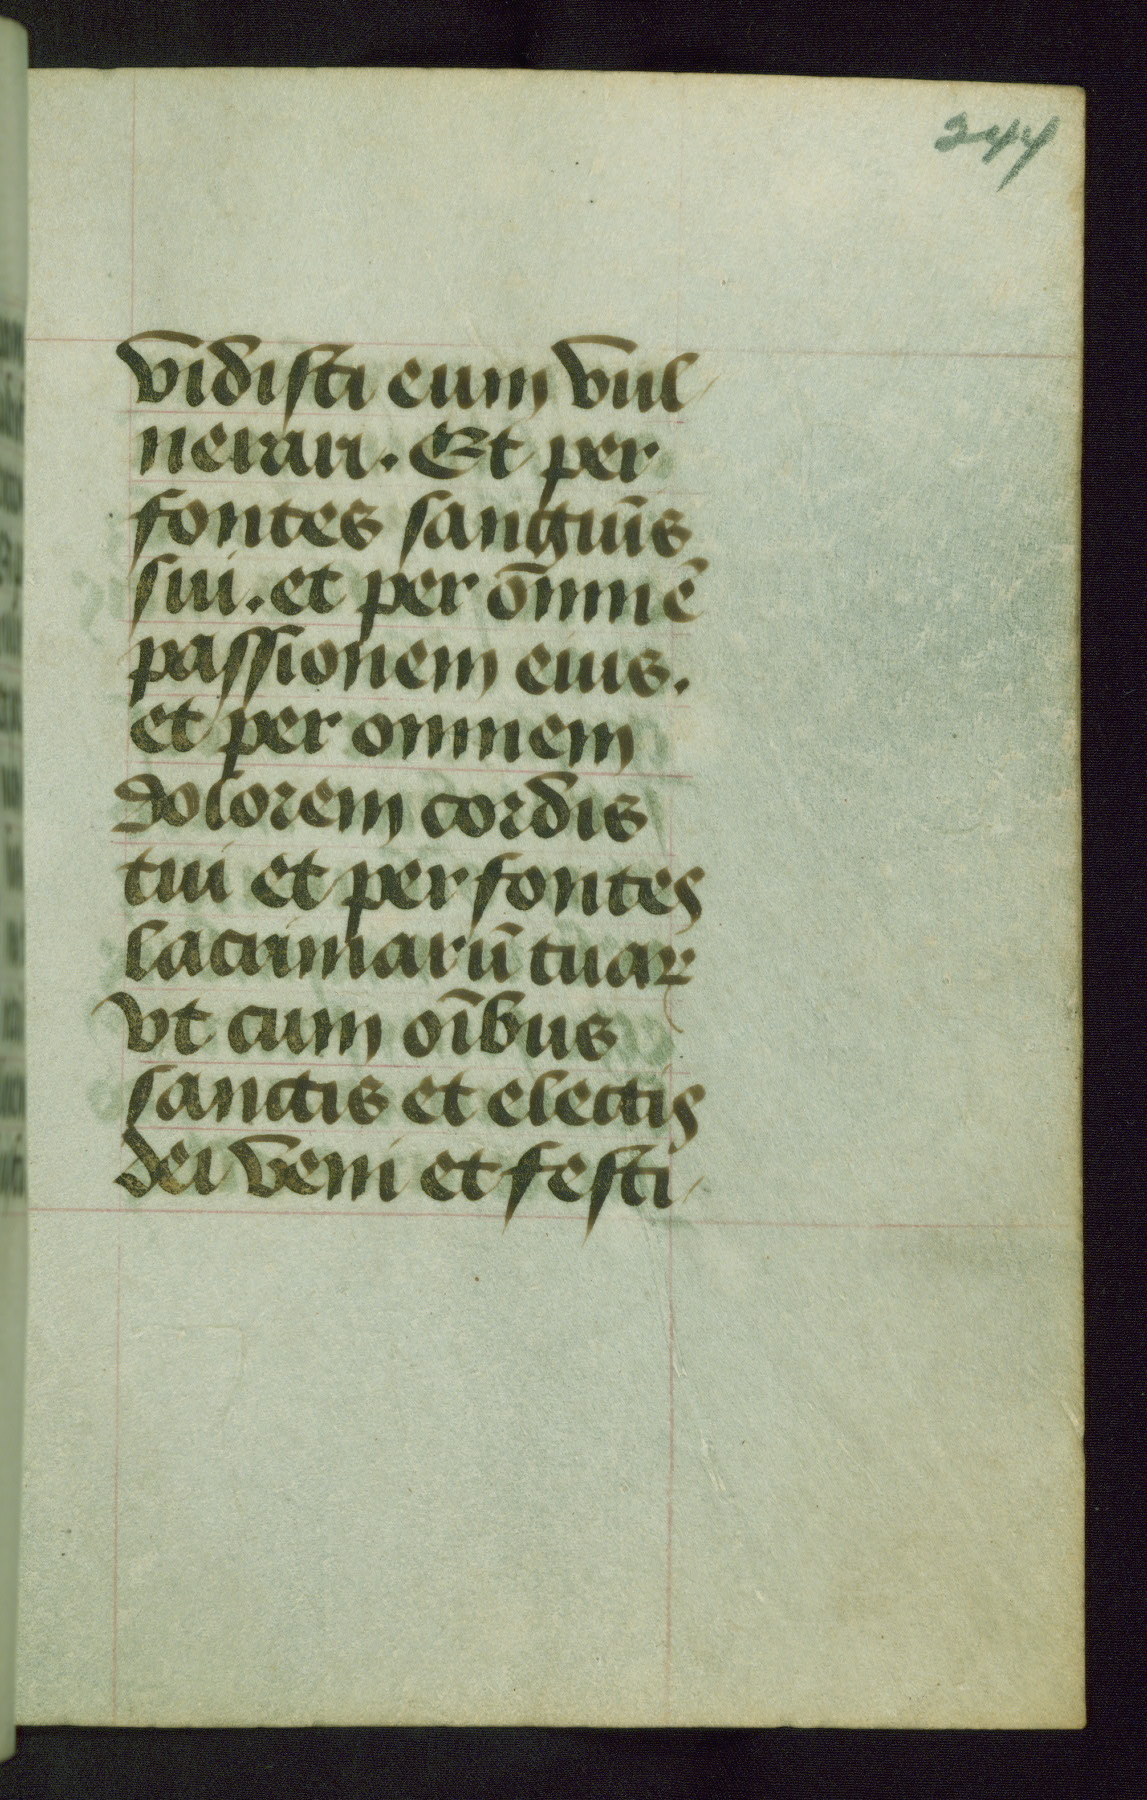 244
vidisti eum vul
nerari. Et per
fontes sanguīs
sui. et per omnē
passionem eius.
et per omnem
dolorem cordis
tui et per fontes
lacrimarū tuaꝝ
vt cum oībus
sanctis et electis
dei veni et festi